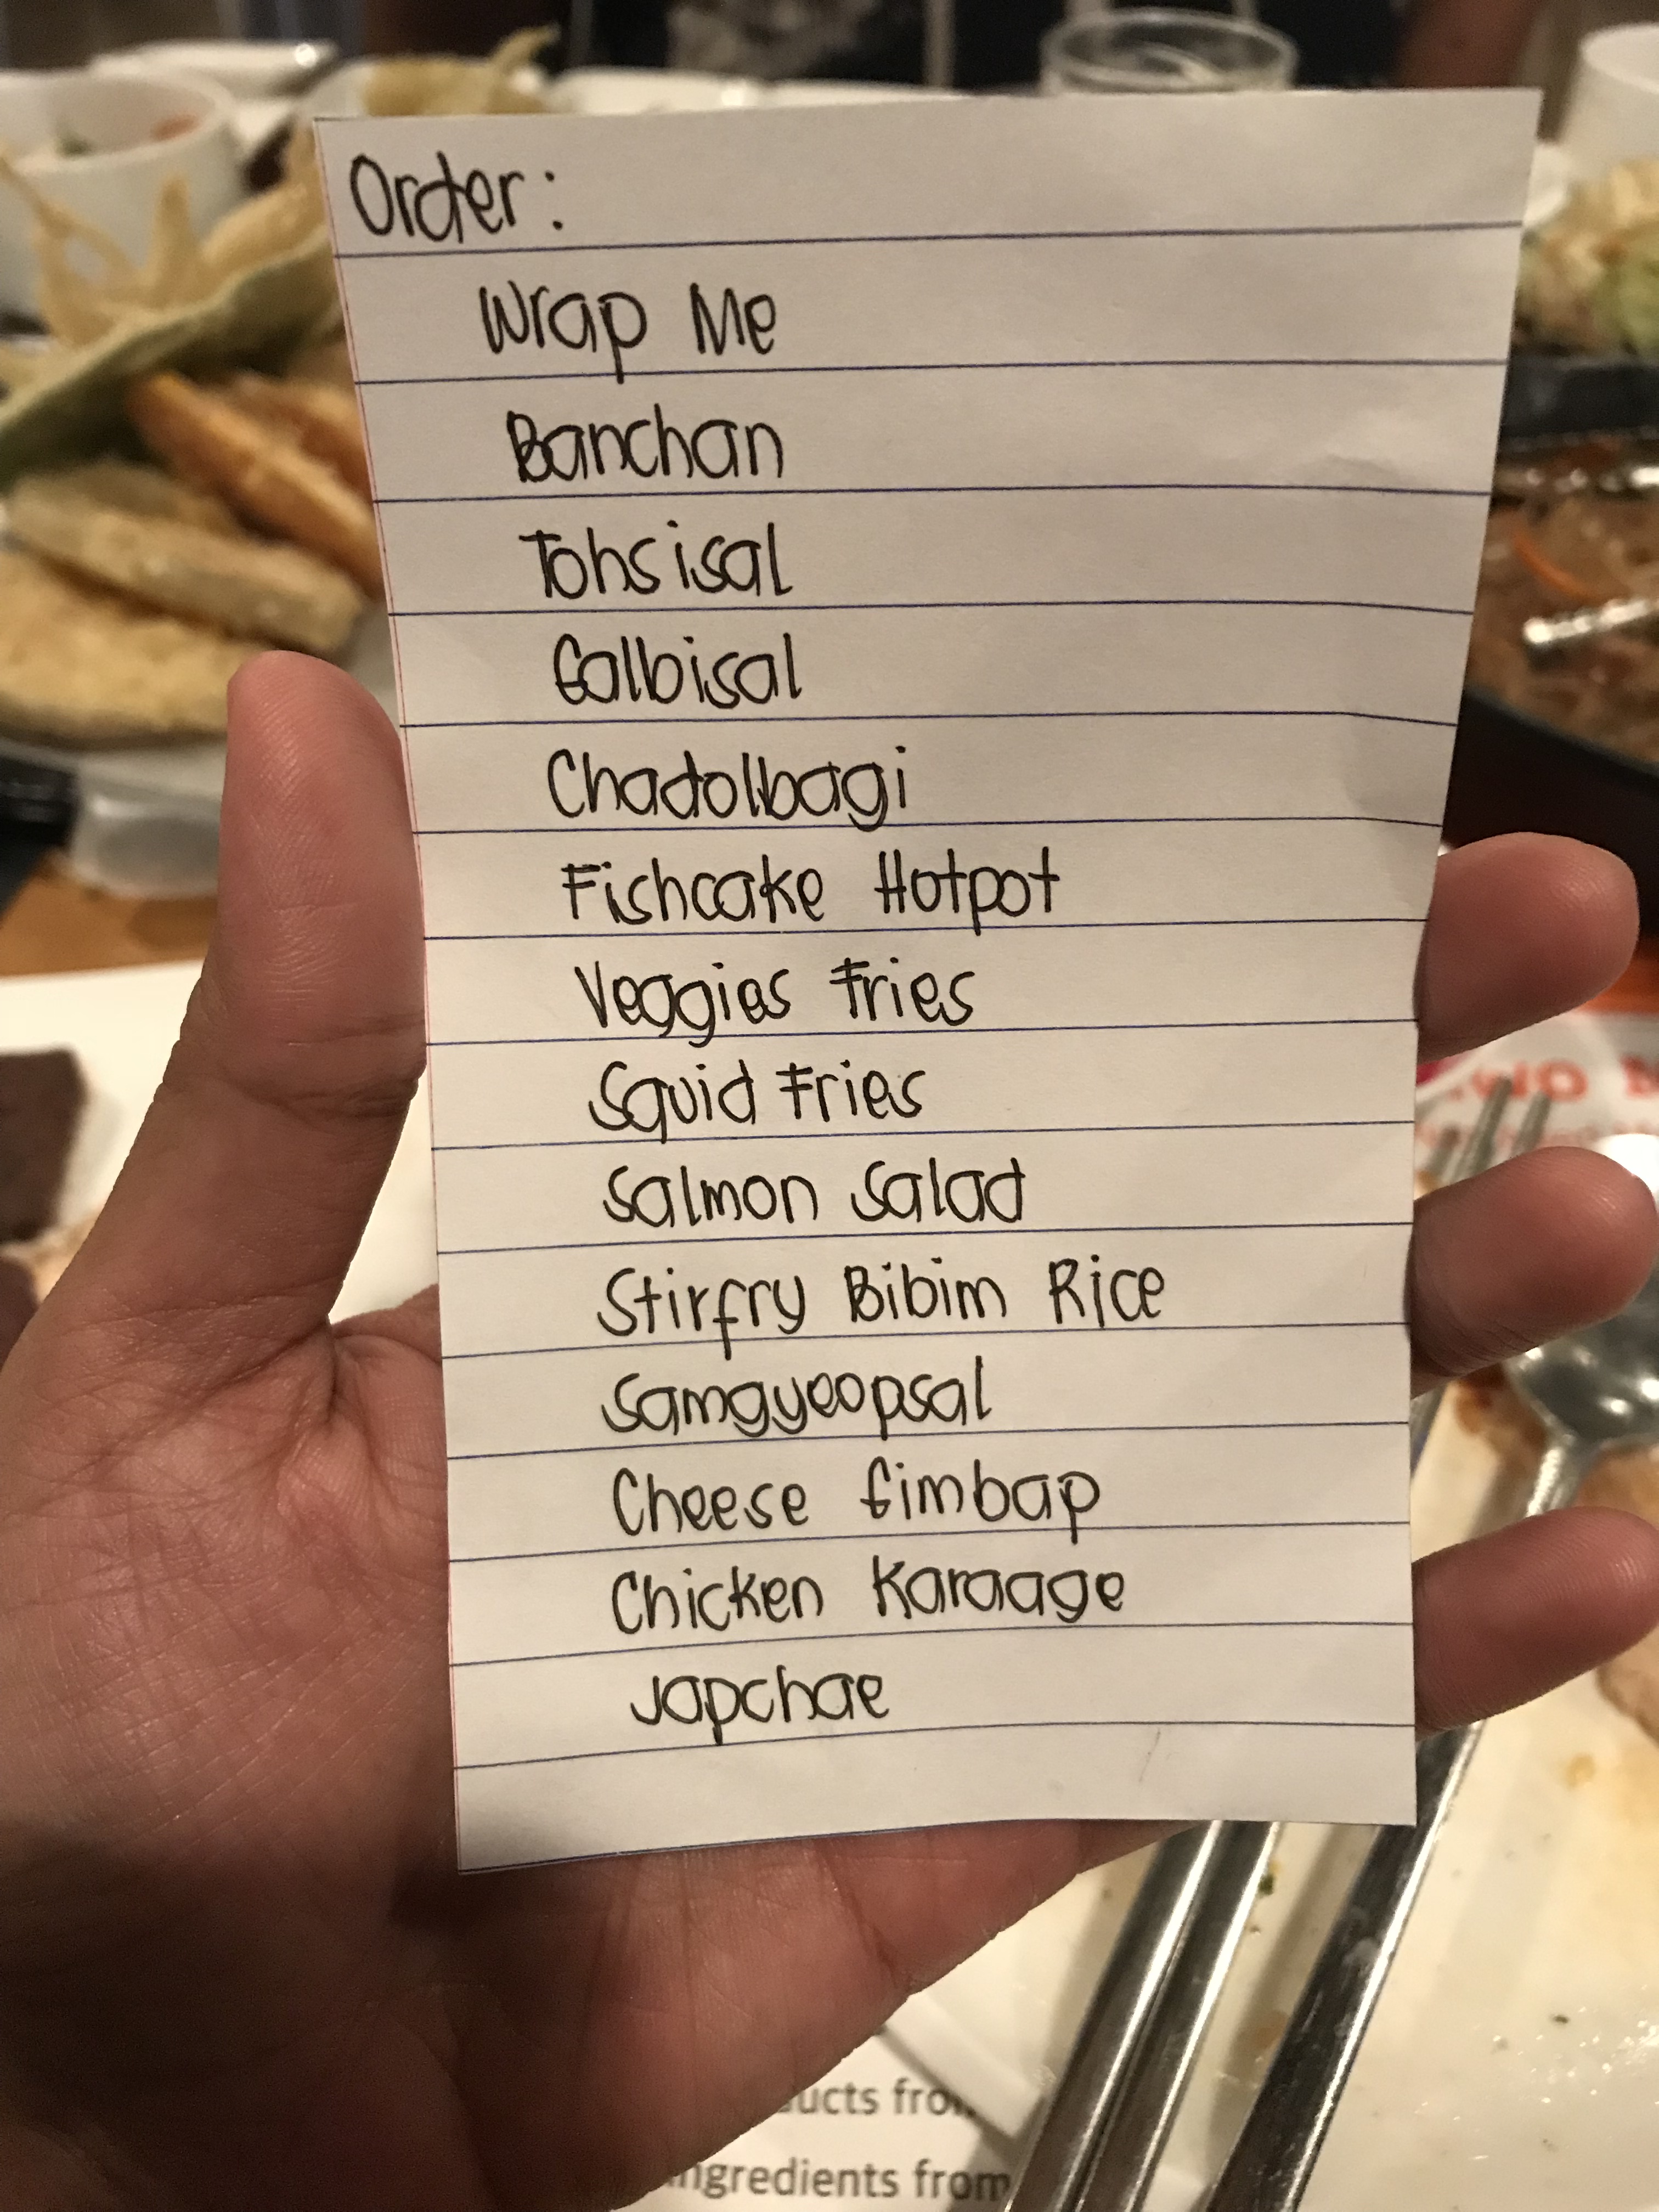 Order:
Wrap Me
Banchan
Tohsisal
Galbisal
Chadolbagi
Fishcake Hotpot
Veggies Fries
Squid Fries
Salmon Salad
Stirfry Bibim Rice
Samgyeopsal
Cheese Gimbap
Chicken Karaage
Japchae
ingredients from